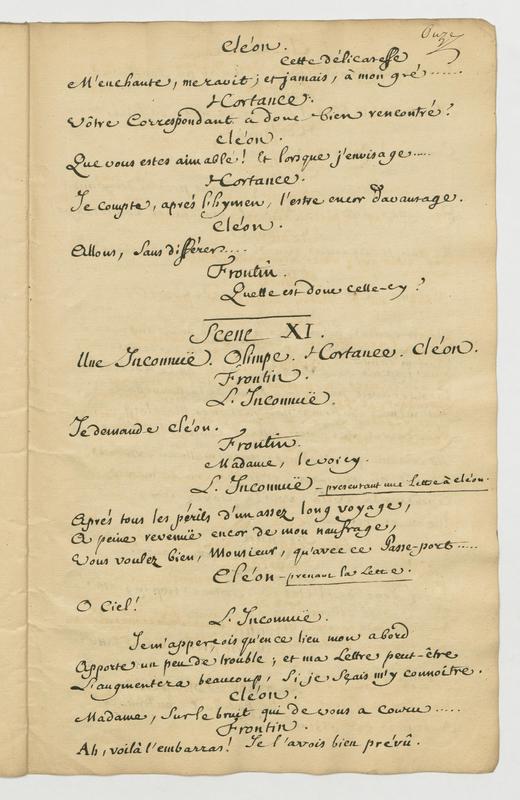 Onze
Cléon.
Cette délicatesse
M'enchante, me ravit; et jamais, à mon gré ......
Hortance.
Vôtre Correspondant a donc bien rencontré?
Cléon.
Que vous estes aimable! Et lorsque j'envisage....
Hortance.
Je compte, aprés l'hymen, l'estre encor davantage.
Cléon.
Allons, sans différer....
Frontin.
Quelle est donc celle-cy?
Scene XI.
Une Inconnuë. Olimpe. Hortance. Cléon.
Frontin.
L'Inconnuë.
Je demande Cléon.
Frontin.
Madame, le voicy.
L'Inconnuë - presentant une Lettre à Cléon.
Aprés tous les périls d'un assez long voyage,
A peine revenuë encor de mon naufrage,
Vous voulez bien, Monsieur, qu'avec ce Passe-port.....
Cléon - prenant la Lettre.
O Ciel!
L'Inconnuë.
Je m'apperçois qu'en ce lieu mon abord
Apporte un peu de trouble; et ma Lettre peut-être
L'augmentera beaucoup, Si je sçais m'y connoître.
Cléon.
Madame, sur le bruit qui de vous a couru.....
Frontin.
Ah, voilà l'embarras! Je l'avois bien prévû.